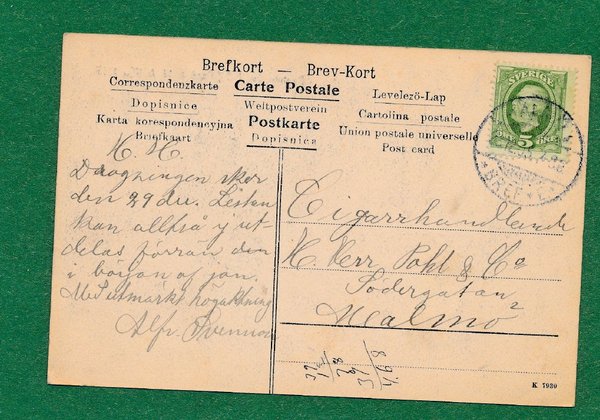 Brefkort — Brev-Kort
Correspondenzkarte Carte Postale Levelező-Lap
Dopisnice Weltpostverein Cartolina postale
Karta korespondencyjna Postkarte Union postale universelle
Briefkaart Dopisnica Post card
SVERIGE
5
H. H.
Dragningen sker
den 29 du. Listen
kan alltså ej ut-
delas förrän den
i början af jan.
Med utmärkt högaktning
Alfr. Svenson
Cigarrhandlande
H. Herr Pohl & Co
Södergatan 2
Malmö
K 7939